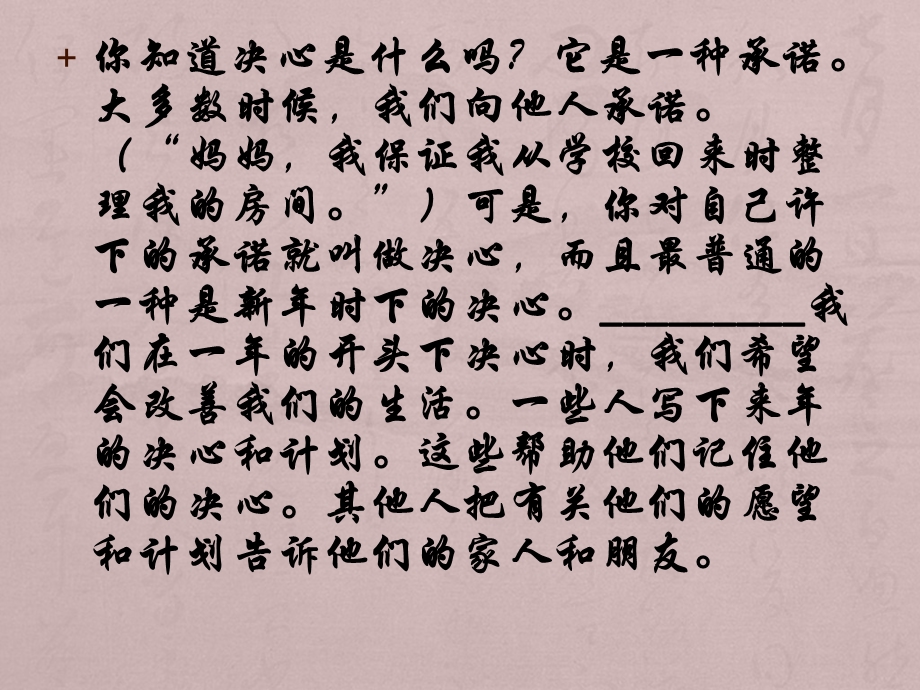 + 你知道决心是什么吗？它是一种承诺。
大多数时候，我们向他人承诺。
（“妈妈，我保证我从学校回来时整
理我的房间。”）可是，你对自己许
下的承诺就叫做决心，而且最普通的
一种是新年时下的决心。_________我
们在一年的开头下决心时，我们希望
会改善我们的生活。一些人写下来年
的决心和计划。这些帮助他们记住他
们的决心。其他人把有关他们的愿望
和计划告诉他们的家人和朋友。